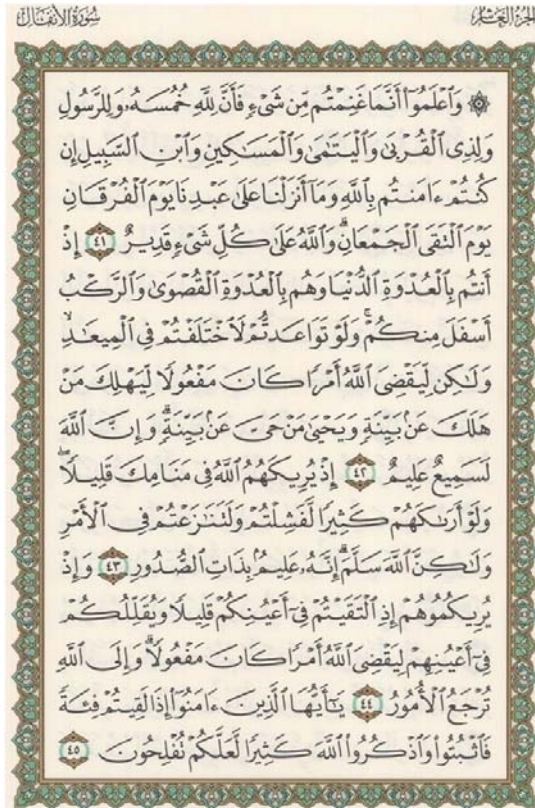 سُورَةُ الأَنفَالِ
الجُزْءُ العَاشِرُ
۞ وَٱعْلَمُوٓا۟ أَنَّمَا غَنِمْتُم مِّن شَىْءٍ فَأَنَّ لِلَّهِ خُمُسَهُۥ وَلِلرَّسُولِ
وَلِذِى ٱلْقُرْبَىٰ وَٱلْيَتَٰمَىٰ وَٱلْمَسَٰكِينِ وَٱبْنِ ٱلسَّبِيلِ إِن
كُنتُمْ ءَامَنتُم بِٱللَّهِ وَمَآ أَنزَلْنَا عَلَىٰ عَبْدِنَا يَوْمَ ٱلْفُرْقَانِ
يَوْمَ ٱلْتَقَى ٱلْجَمْعَانِ ۗ وَٱللَّهُ عَلَىٰ كُلِّ شَىْءٍ قَدِيرٌ ٤١ إِذْ
أَنتُم بِٱلْعُدْوَةِ ٱلدُّنْيَا وَهُم بِٱلْعُدْوَةِ ٱلْقُصْوَىٰ وَٱلرَّكْبُ
أَسْفَلَ مِنكُمْ ۚ وَلَوْ تَوَاعَدتُّمْ لَٱخْتَلَفْتُمْ فِى ٱلْمِيعَٰدِ ۙ
وَلَٰكِن لِّيَقْضِىَ ٱللَّهُ أَمْرًا كَانَ مَفْعُولًا لِّيَهْلِكَ مَنْ
هَلَكَ عَنۢ بَيِّنَةٍ وَيَحْيَىٰ مَنْ حَىَّ عَنۢ بَيِّنَةٍ ۗ وَإِنَّ ٱللَّهَ
لَسَمِيعٌ عَلِيمٌ ٤٢ إِذْ يُرِيكَهُمُ ٱللَّهُ فِى مَنَامِكَ قَلِيلًا ۖ
وَلَوْ أَرَىٰكَهُمْ كَثِيرًا لَّفَشِلْتُمْ وَلَتَنَٰزَعْتُمْ فِى ٱلْأَمْرِ
وَلَٰكِنَّ ٱللَّهَ سَلَّمَ ۗ إِنَّهُۥ عَلِيمٌۢ بِذَاتِ ٱلصُّدُورِ ٤٣ وَإِذْ
يُرِيكُمُوهُمْ إِذِ ٱلْتَقَيْتُمْ فِىٓ أَعْيُنِكُمْ قَلِيلًا وَيُقَلِّلُكُمْ
فِىٓ أَعْيُنِهِمْ لِيَقْضِىَ ٱللَّهُ أَمْرًا كَانَ مَفْعُولًا ۗ وَإِلَى ٱللَّهِ
تُرْجَعُ ٱلْأُمُورُ ٤٤ يَٰٓأَيُّهَا ٱلَّذِينَ ءَامَنُوٓا۟ إِذَا لَقِيتُمْ فِئَةً
فَٱثْبُتُوا۟ وَٱذْكُرُوا۟ ٱللَّهَ كَثِيرًا لَّعَلَّكُمْ تُفْلِحُونَ ٤٥